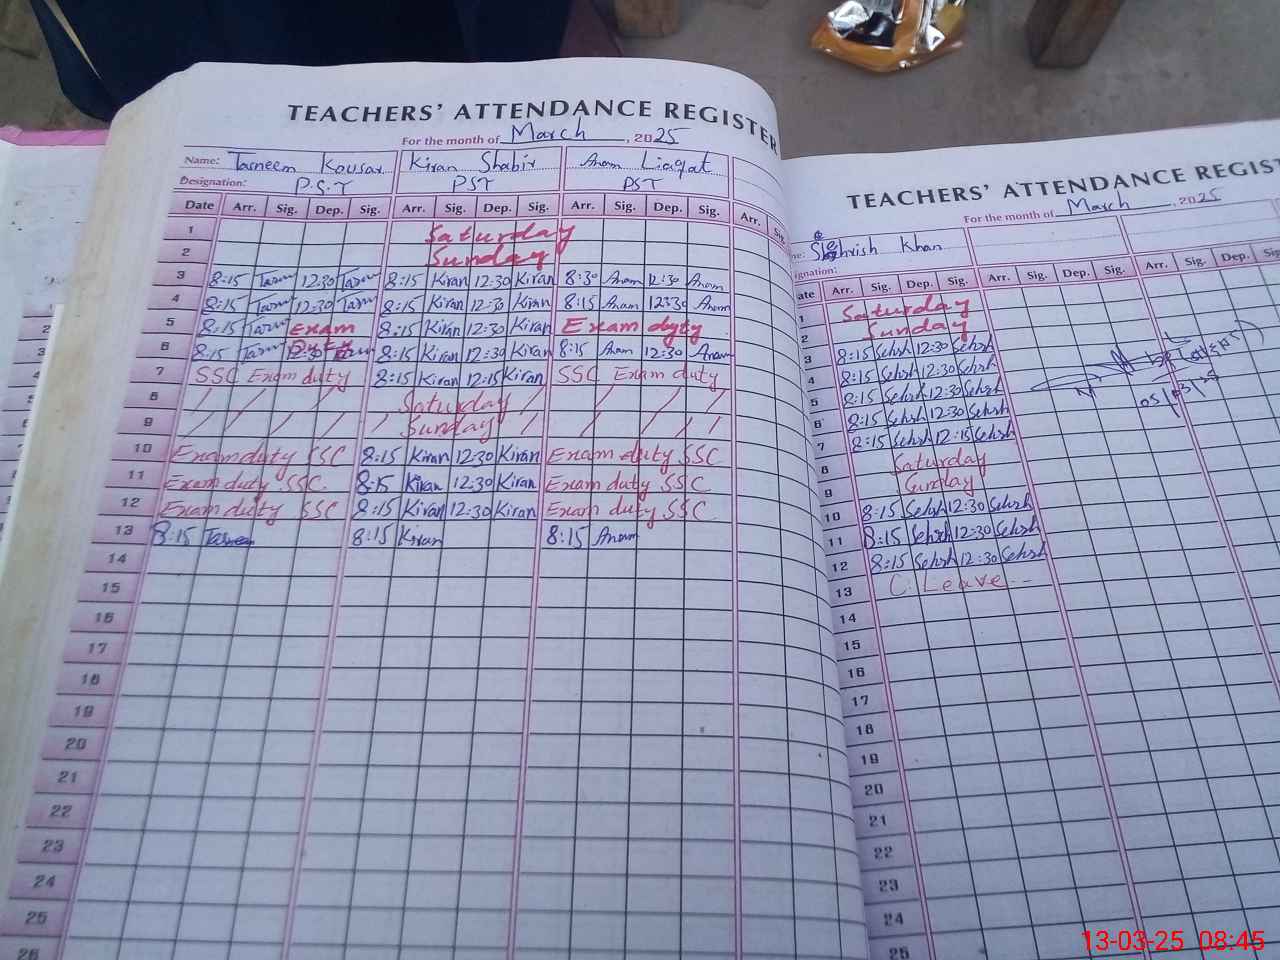 TEACHERS' ATTENDANCE REGISTER
For the month of March, 2025
Name: Tasneem Kousar Kiran Shabir Anam Liaqat
Designation: P.S.T PST PST
Date Arr. Sig. Dep. Sig. Arr. Sig. Dep. Sig. Arr. Sig. Dep. Sig. Arr. Sig
1 Saturday
2 Sunday
3 8:15 Tasn 12:30 Tasn 8:15 Kiran 12:30 Kiran 8:30 Anam 12:30 Anam
4 8:15 Tasn 12:30 Tasn 8:15 Kiran 12:30 Kiran 8:15 Anam 12:30 Anam
5 8:15 Tasn Exam Duty 8:15 Kiran 12:30 Kiran Exam duty
6 8:15 Tasn 12:30 Tasn 8:15 Kiran 12:30 Kiran 8:15 Anam 12:30 Anam
7 SSC Exam duty 8:15 Kiran 12:15 Kiran SSC Exam duty
8 / / / / Saturday / / / / /
9 / / / / Sunday / / / / /
10 Exam duty SSC 8:15 Kiran 12:30 Kiran Exam duty SSC
11 Exam duty SSC. 8:15 Kiran 12:30 Kiran Exam duty SSC
12 Exam duty SSC 8:15 Kiran 12:30 Kiran Exam duty SSC
13 8:15 Tasneem 8:15 Kiran 8:15 Anam
14
15
16
17
18
19
20
21
22
23
24
25
26
TEACHERS' ATTENDANCE REGIST
For the month of March, 2025
me: Sehrish Khan
signation:
ate Arr. Sig. Dep. Sig. Arr. Sig. Dep. Sig. Arr. Sig. Dep. Sig.
1 Saturday
2 Sunday
3 8:15 Sehsh 12:30 Sehsh
4 8:15 Sehsh 12:30 Sehsh
5 8:15 Sehsh 12:30 Sehsh
6 8:15 Sehsh 12:30 Sehsh
7 8:15 Sehsh 12:15 Sehsh
8 Saturday
9 Sunday
10 8:15 Sehsh 12:30 Sehsh
11 8:15 Sehsh 12:30 Sehsh
12 8:15 Sehsh 12:30 Sehsh
13 C. Leave
14
15
16
17
18
19
20
21
22
23
24
25
05/03/25
13-03-25 08:45